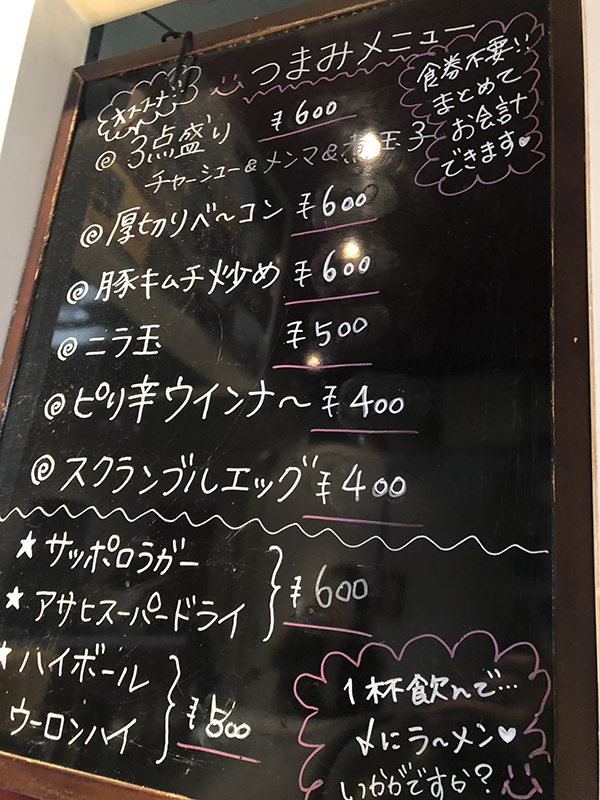 つまみメニュー
オススメ!!
食券不要!!
まとめて
お会計
できます♥
@ 3点盛り ¥600
チャーシュー&メンマ&煮玉子
@ 厚切りベ〜コン ¥600
@ 豚キムチ炒め ¥600
@ ニラ玉 ¥500
@ ピリ辛ウインナ〜 ¥400
@ スクランブルエッグ ¥400
★ サッポロラガー
★ アサヒスーパードライ
¥600
★ ハイボール
ウーロンハイ
¥500
1杯飲んで…
〆にラ〜メン♥
いかがですか?